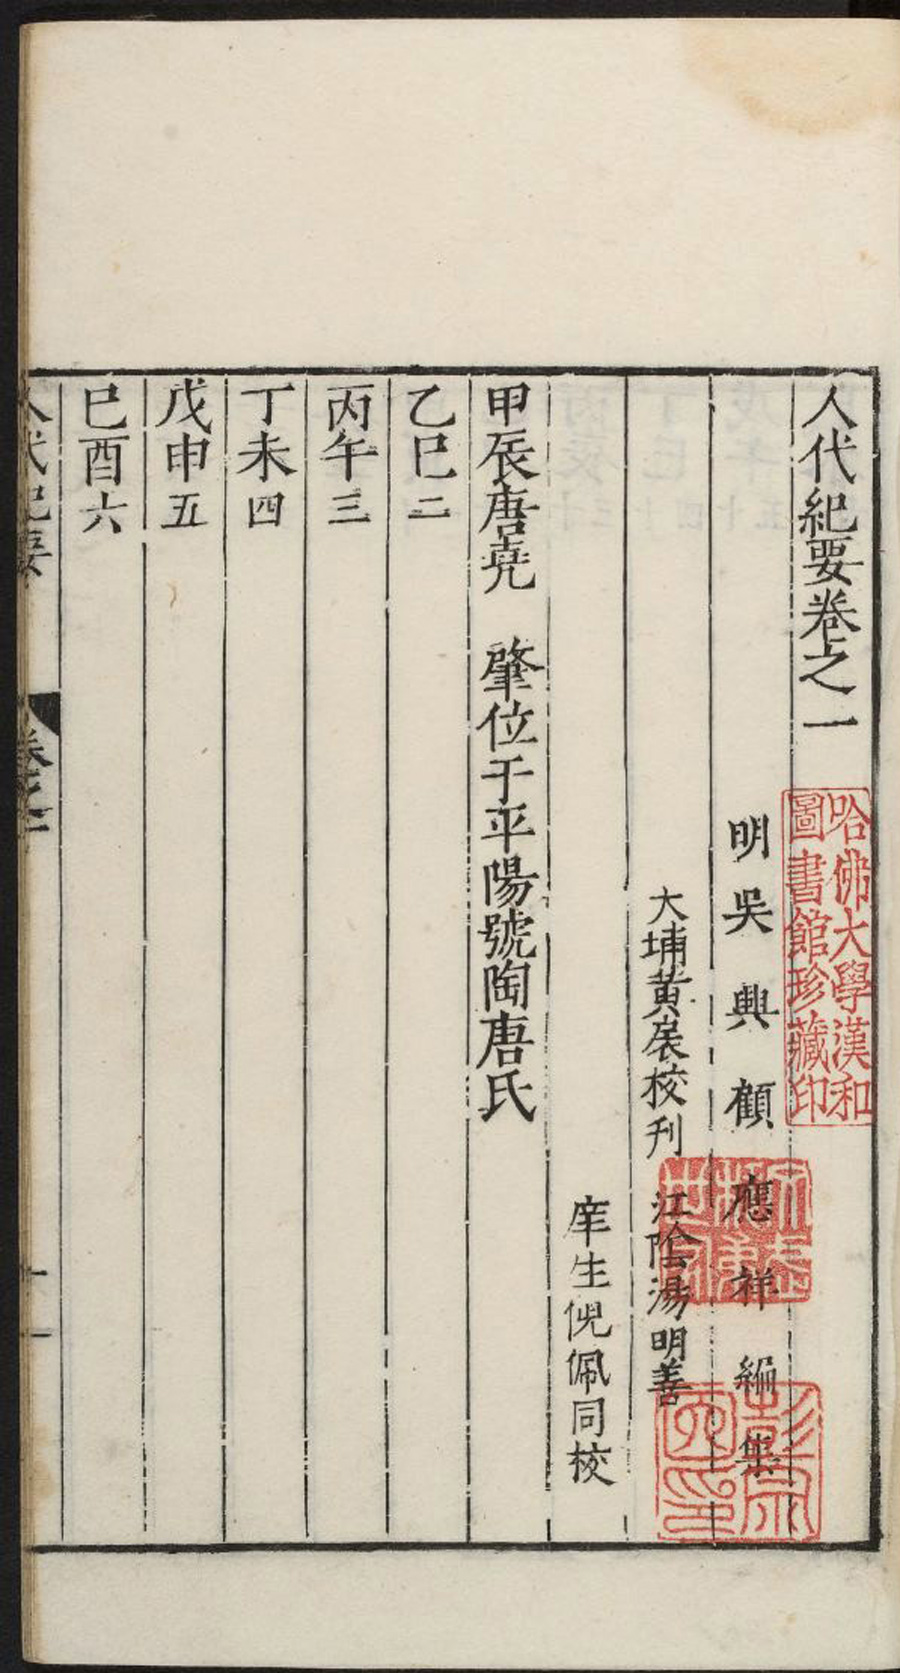 人代紀要卷之一
明吳興顧應祥編集
大埔黃扆校刊 江陰湯明善
庠生倪佩同校
甲辰唐堯 肇位于平陽號陶唐氏
乙巳二
丙午三
丁未四
戊申五
己酉六
人代紀要 卷之一
哈佛大學漢和
圖書館珍藏印